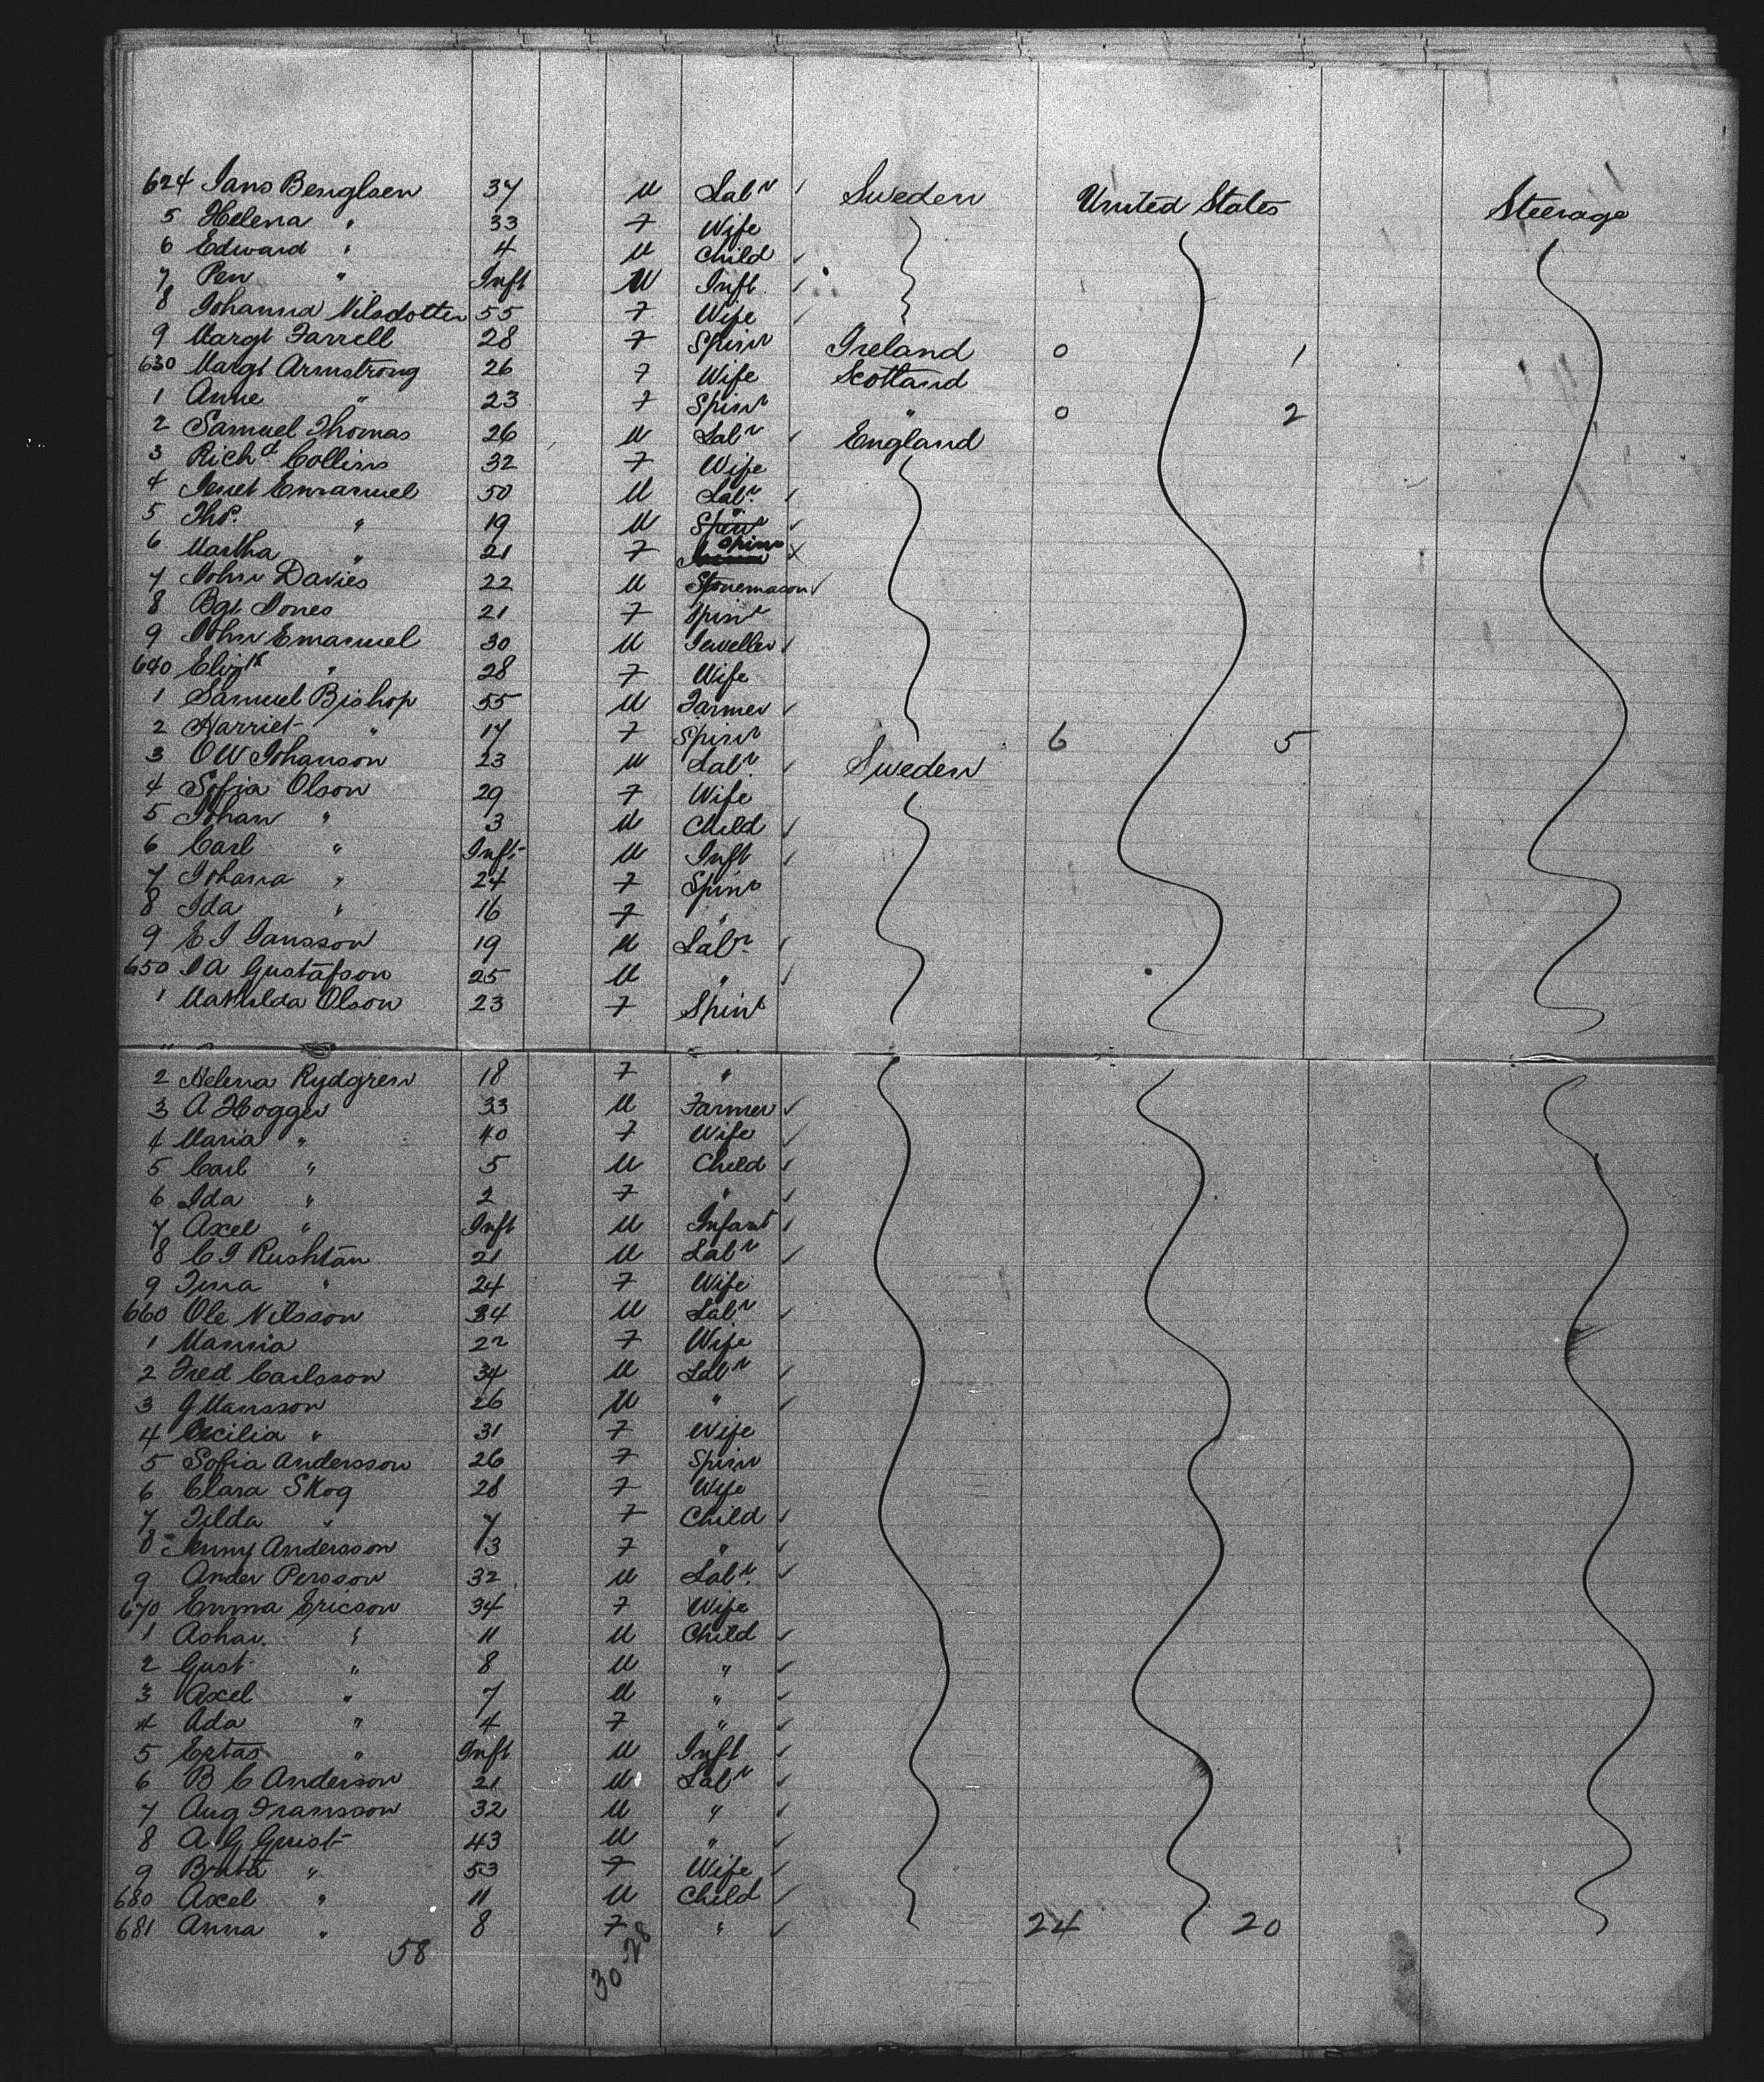 624 Jans Benglsen 37 M Labr Sweden United States Steerage
5 Helena " 33 F Wife
6 Edward " 4 M Child
7 Pen " Inft M Inft
8 Johanna Nilsdotter 55 F Wife
9 Margt Farrell 28 F Spinr Ireland 0 1
630 Margt Armstrong 26 F Wife Scotland
1 Anne " 23 F Spinr " 0 2
2 Samuel Thomas 26 M Labr England
3 Richd Collins 32 F Wife
4 Jenet Emanuel 50 M Labr
5 Thos. " 19 M "
6 Martha " 21 F Spinr
7 John Davies 22 M Stonemason
8 Bgt Jones 21 F Spinr
9 John Emanuel 30 M Jeweller
640 Elizth " 28 F Wife
1 Samuel Bishop 55 M Farmer
2 Harriet " 17 F Spinr 6 5
3 O W Johanson 23 M Labr Sweden
4 Sofia Olson 29 F Wife
5 Johan " 3 M Child
6 Carl " Inft M Inft
7 Johana " 24 F Spinr
8 Ida " 16 F "
9 E J Jansson 19 M Labr
650 J A Gustafson 25 M "
1 Mathilda Olson 23 F Spinr
2 Helena Rydgren 18 F "
3 A Hogger 33 M Farmer
4 Maria " 40 F Wife
5 Carl " 5 M Child
6 Ida " 2 F "
7 Axel " Inft M Infant
8 C J Rushtan 21 M Labr
9 Tina " 24 F Wife
660 Ole Nilsson 34 M Labr
1 Mannia 22 F Wife
2 Fred Carlsson 34 M Labr
3 G Mansson 26 M "
4 Cecilia " 31 F Wife
5 Sofia Andersson 26 F Spinr
6 Clara Skog 28 F Wife
7 Tilda " 7 F Child
8 Jenny Andersson 13 F "
9 Ander Persson 32 M Labr
670 Emma Ericson 34 F Wife
1 Ashar " 11 M Child
2 Gust " 8 M "
3 Axel " 7 M "
4 Ada " 4 F "
5 Ertas " Inft M Inft
6 B C Anderson 21 M Labr
7 Aug Fransson 32 M "
8 A G Gruist 43 M "
9 Brita " 53 F Wife
680 Axel " 11 M Child
681 Anna " 8 F " 24 20
58 30 28